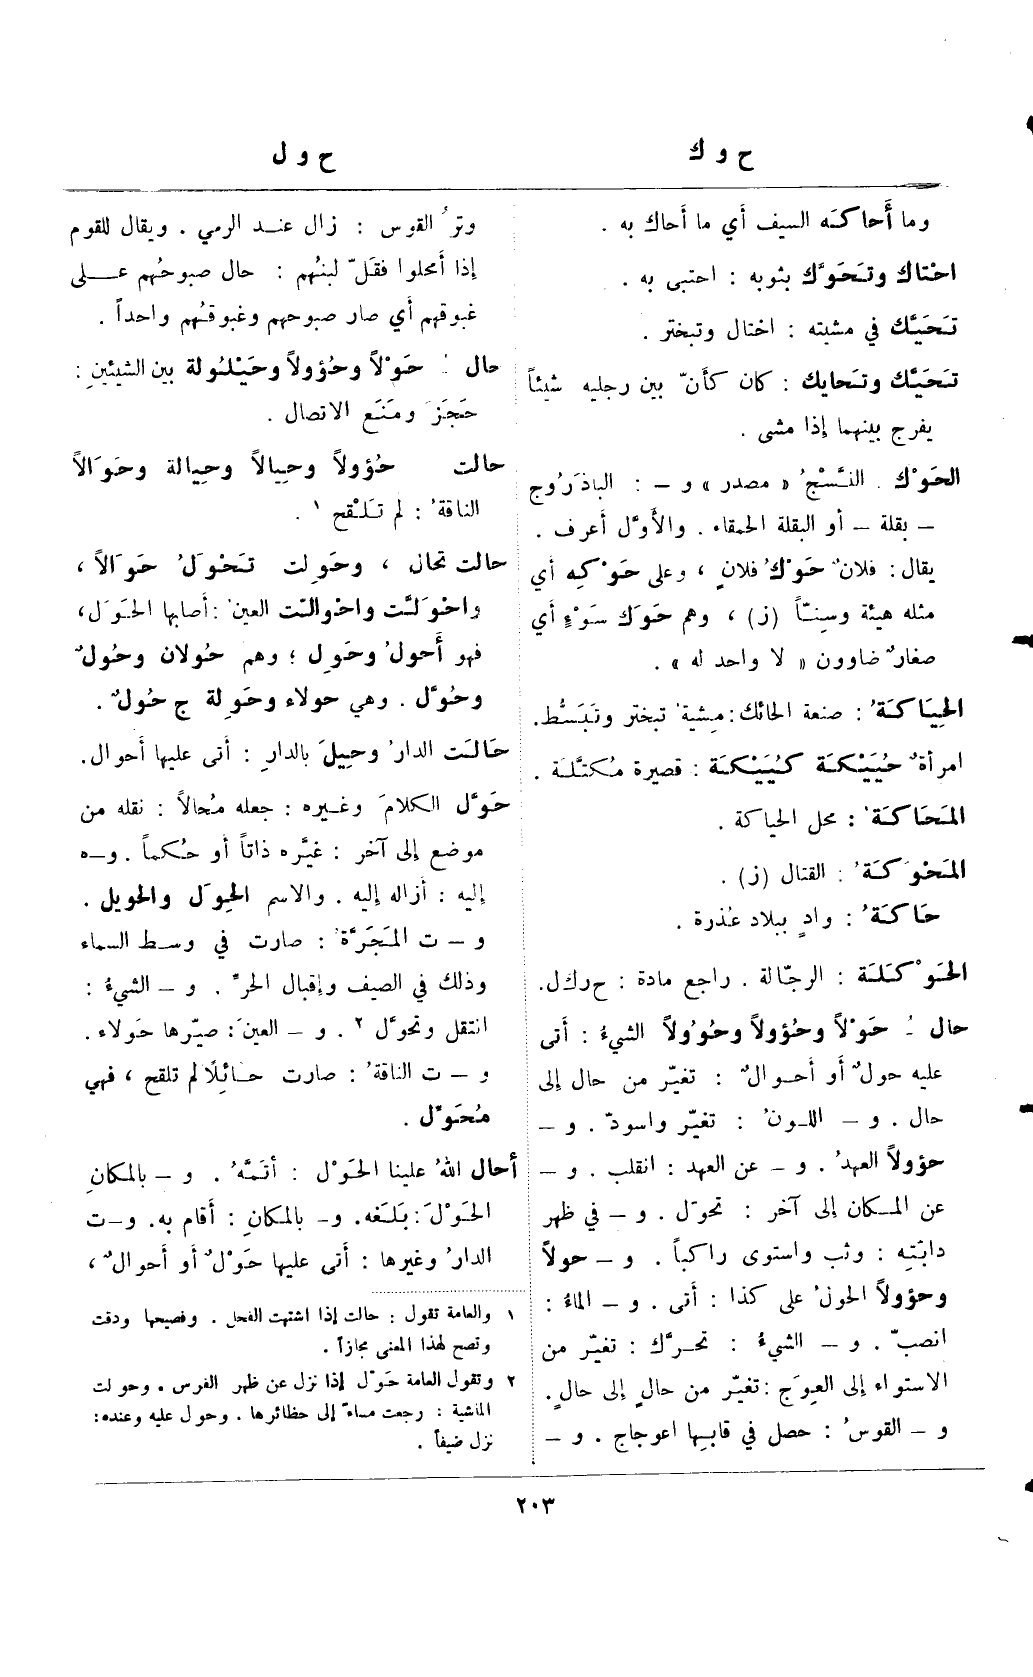 ح و ك
ح و ل
وما أَحاكَه السيف أي ما أحاك به .
احْتاك وتَحَوَّك بثوبه : احتبى به .
تَحَيَّك في مشيته : اختال وتبختر .
تَحَيَّك وتَحايك : كان كأنّ بين رجليه شيئاً
يفرج بينهما إذا مشى .
الحَوْك . النَّسْجُ « مصدر » و – : الباذَرُوج
– بقلة – أو البقلة الحمقاء . والأوَّل أعرف .
يقال : فلانٌ حَوْكُ فلانٍ ، وعلى حَوْكِه أي
مثله هيئة وسِنّاً (ز) ، وهم حَوَك سَوْءٍ أي
صغارٌ ضاوون « لا واحد له » .
الحِيَاكَةُ : صنعة الحائك : مِشية تبختر وتَبَسُّط.
امرأةٌ حُيَيْكَة كُيَيْكَة : قصيرة مُكتَّلَة .
المَحَاكَةُ : محل الحياكة .
المَحْوَكَةُ : القتال (ز) .
حَاكَةُ : وادٍ ببلاد عُذرة .
الحَوْكَلَة : الرجّالة . راجع مادة : ح ر ك ل.
حال ُ حَوْلاً وحُؤولاً وحُوُولاً الشيءُ : أتى
عليه حولٌ أو أحوالٌ : تغيّر من حال إلى
حال . و – اللونُ : تغيّر واسودّ . و –
حؤولاً العهدُ . و – عن العهد : انقلب . و –
عن المكان إلى آخر : تحوّل . و – في ظهر
دابّتِه : وثب واستوى راكباً . و – حولاً
وحؤولاً الحولُ على كذا : أتى . و – الماءُ :
انصبّ . و – الشيءُ : تحرَّك : تغيّر من
الاستواء إلى العِوَج : تغيّر من حالٍ إلى حالٍ .
و – القوسُ : حصل في قابِها اعوجاج . و –
وترُ القوس : زال عند الرمي . ويقال للقوم
إذا أمحلوا فقَلّ لبنُهم : حال صبوحُهم على
غبوقهم أي صار صبوحهم وغبوقُهم واحداً .
حال ُ حَوْلاً وحُؤولاً وحَيْلُولة بين الشيئينِ :
حَجَزَ ومَنَع الاتصال .
حالت حُؤولاً وحِيالاً وحِيالة وحَوَالاً
الناقةُ : لم تَلْقح ١ .
حالت تحال ، وحَوِلت تَحْوَلُ حَوَالاً ،
واحْوَلَّت واحْوالّت العينُ : أصابها الحَوَل،
فهو أَحولُ وحَوِل ؛ وهم حُولان وحُولٌ
وحُوَّل . وهي حولاء وحَوِلة ج حُولٌ .
حَالَت الدارُ وحِيلَ بالدارِ : أتى عليها أحوال.
حَوَّل الكلامَ وغيره : جعله مُحالاً : نقله من
موضع إلى آخر : غيَّره ذاتاً أو حُكماً . و–ه
إليه : أزاله إليه . والاسم الحِوَل والحويل .
و – ت المَجَرَّةُ : صارت في وسط السماء
وذلك في الصيف وإقبال الحرّ . و – الشيءُ :
انتقل وتحوَّل ٢ . و – العينَ : صيّرها حَولاء .
و – ت الناقةُ : صارت حائِلًا لم تلقح ، فهي
مُحَوِّل .
أحال اللهُ علينا الحَوْل : أتمَّهُ . و – بالمكانِ
الحَوْلَ : بَلَغه. و– بالمكانِ : أقام به. و–ت
الدارُ وغيرها : أتى عليها حَوْلٌ أو أحوالٌ ،
١ والعامة تقول : حالت إذا اشتهت الفحل . وفصيحها ودقت
وتصح لهذا المعنى مجازاً .
٢ وتقول العامة حَوّل إذا نزل عن ظهر الفرس . وحولت
الماشية : رجعت مساءً إلى حظائرها . وحول عليه وعنده:
نزل ضيفاً .
٢٠٣